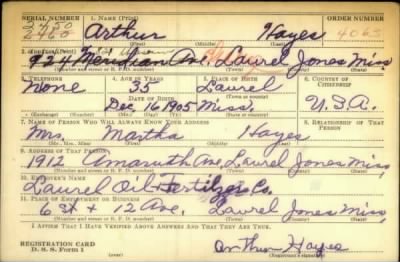 SERIAL NUMBER 1. NAME (Print) ORDER NUMBER
2450
2460 Arthur Hayes 4065
(First) (Middle) (Last)
2. ADDRESS (Print)
924 Meridian Ave, Laurel Jones Miss
(Number and street or R. F. D. number) (Town) (County) (State)
3. TELEPHONE 4. AGE IN YEARS 5. PLACE OF BIRTH 6. COUNTRY OF CITIZENSHIP
None 35 Laurel
DATE OF BIRTH
Dec 1 1905 Miss. U.S.A.
(Exchange) (Number) (Mo.) (Day) (Yr.) (State or country)
7. NAME OF PERSON WHO WILL ALWAYS KNOW YOUR ADDRESS 8. RELATIONSHIP OF THAT PERSON
Mrs. Martha Hayes
(Mr., Mrs., Miss) (First) (Middle) (Last)
9. ADDRESS OF THAT PERSON
1912 Ave, Laurel Jones Miss,
(Number and street or R. F. D. number) (Town) (County) (State)
10. EMPLOYER'S NAME
Laurel Oil Fertilizer Co.
11. PLACE OF EMPLOYMENT OR BUSINESS
6 St + 12 Ave. Laurel Jones Miss,
(Number and street or R. F. D. number) (Town) (County) (State)
I AFFIRM THAT I HAVE VERIFIED ABOVE ANSWERS AND THAT THEY ARE TRUE.
REGISTRATION CARD
D. S. S. Form 1 Arthur Hayes